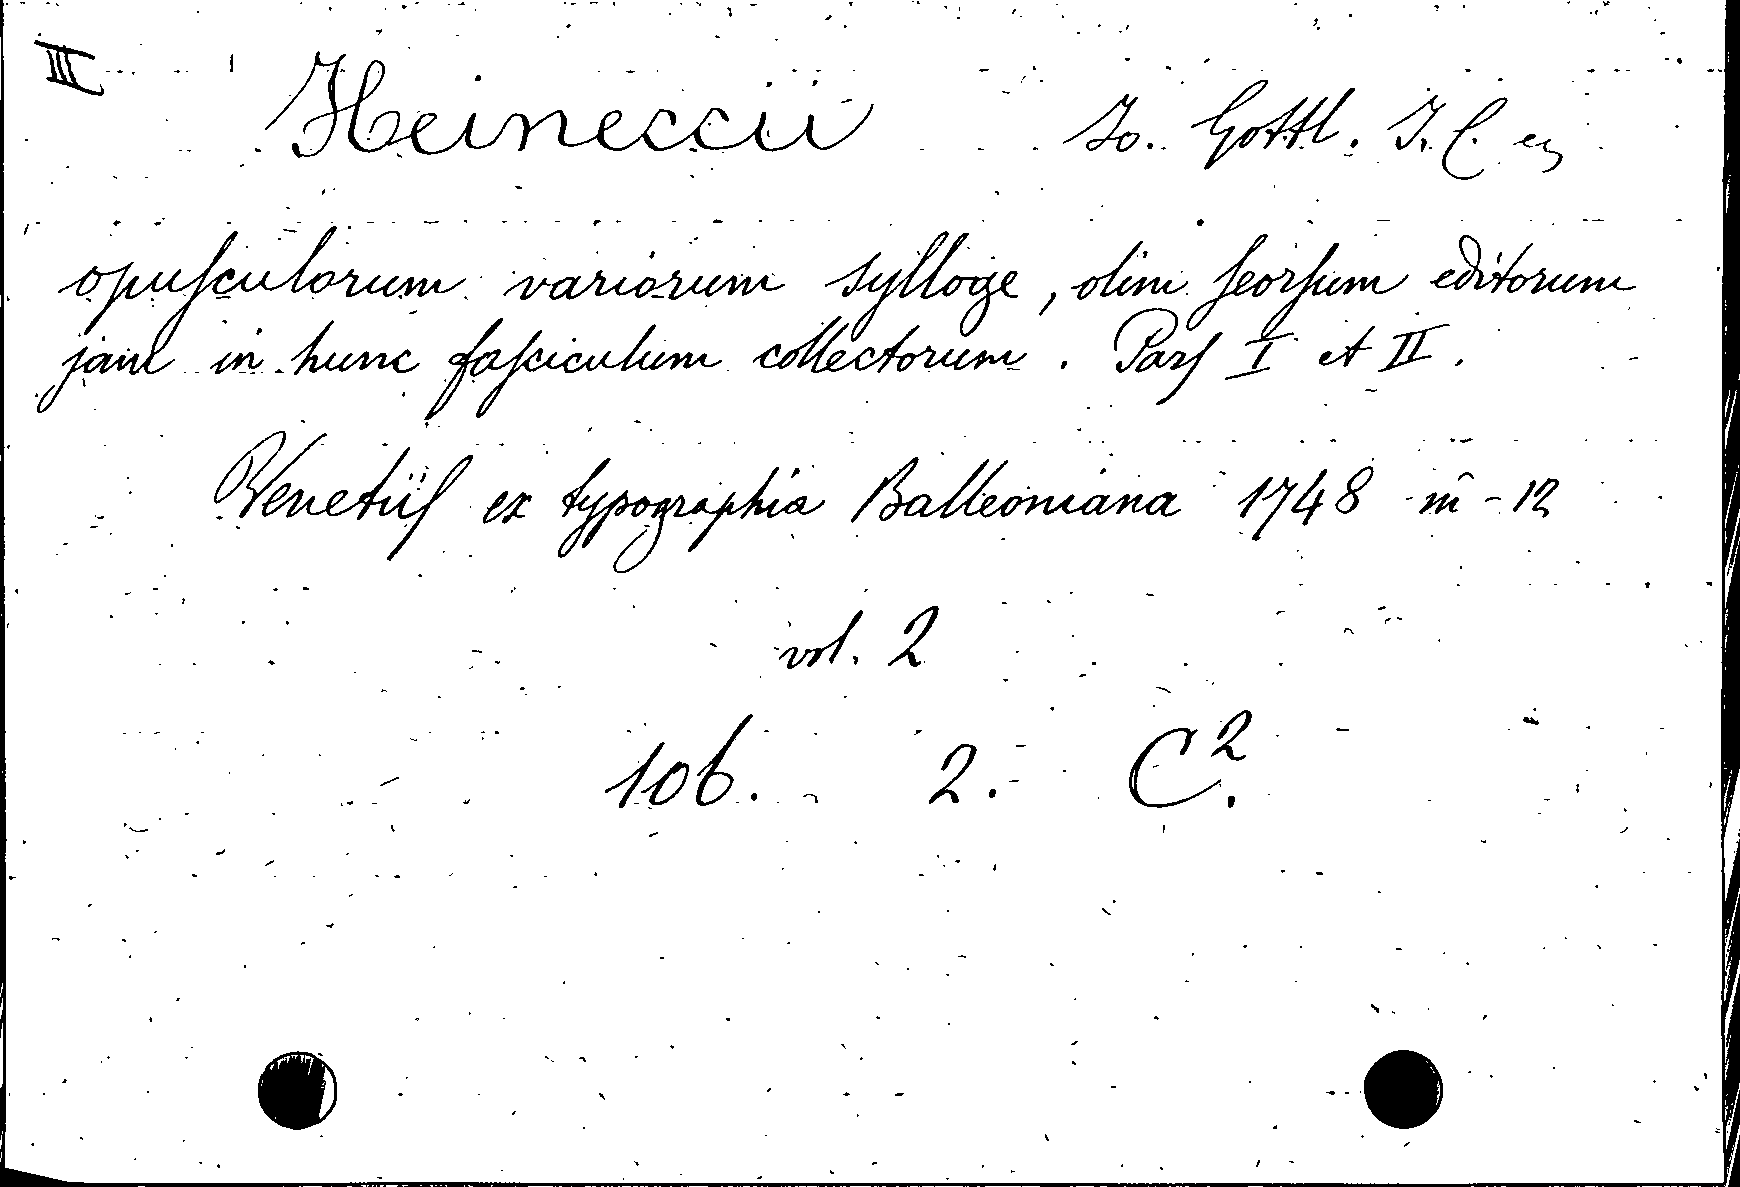 III
Heineccii Jo. Gottl. J. C. en
opuſculorum variorum sylloge, olim ſeorſum editorum
jam in hunc faſciculum collectorum. Parſ I et II.
Venetiiſ ex typographia Balleoniana 1748 in - 12
vol. 2
106. 2. C².